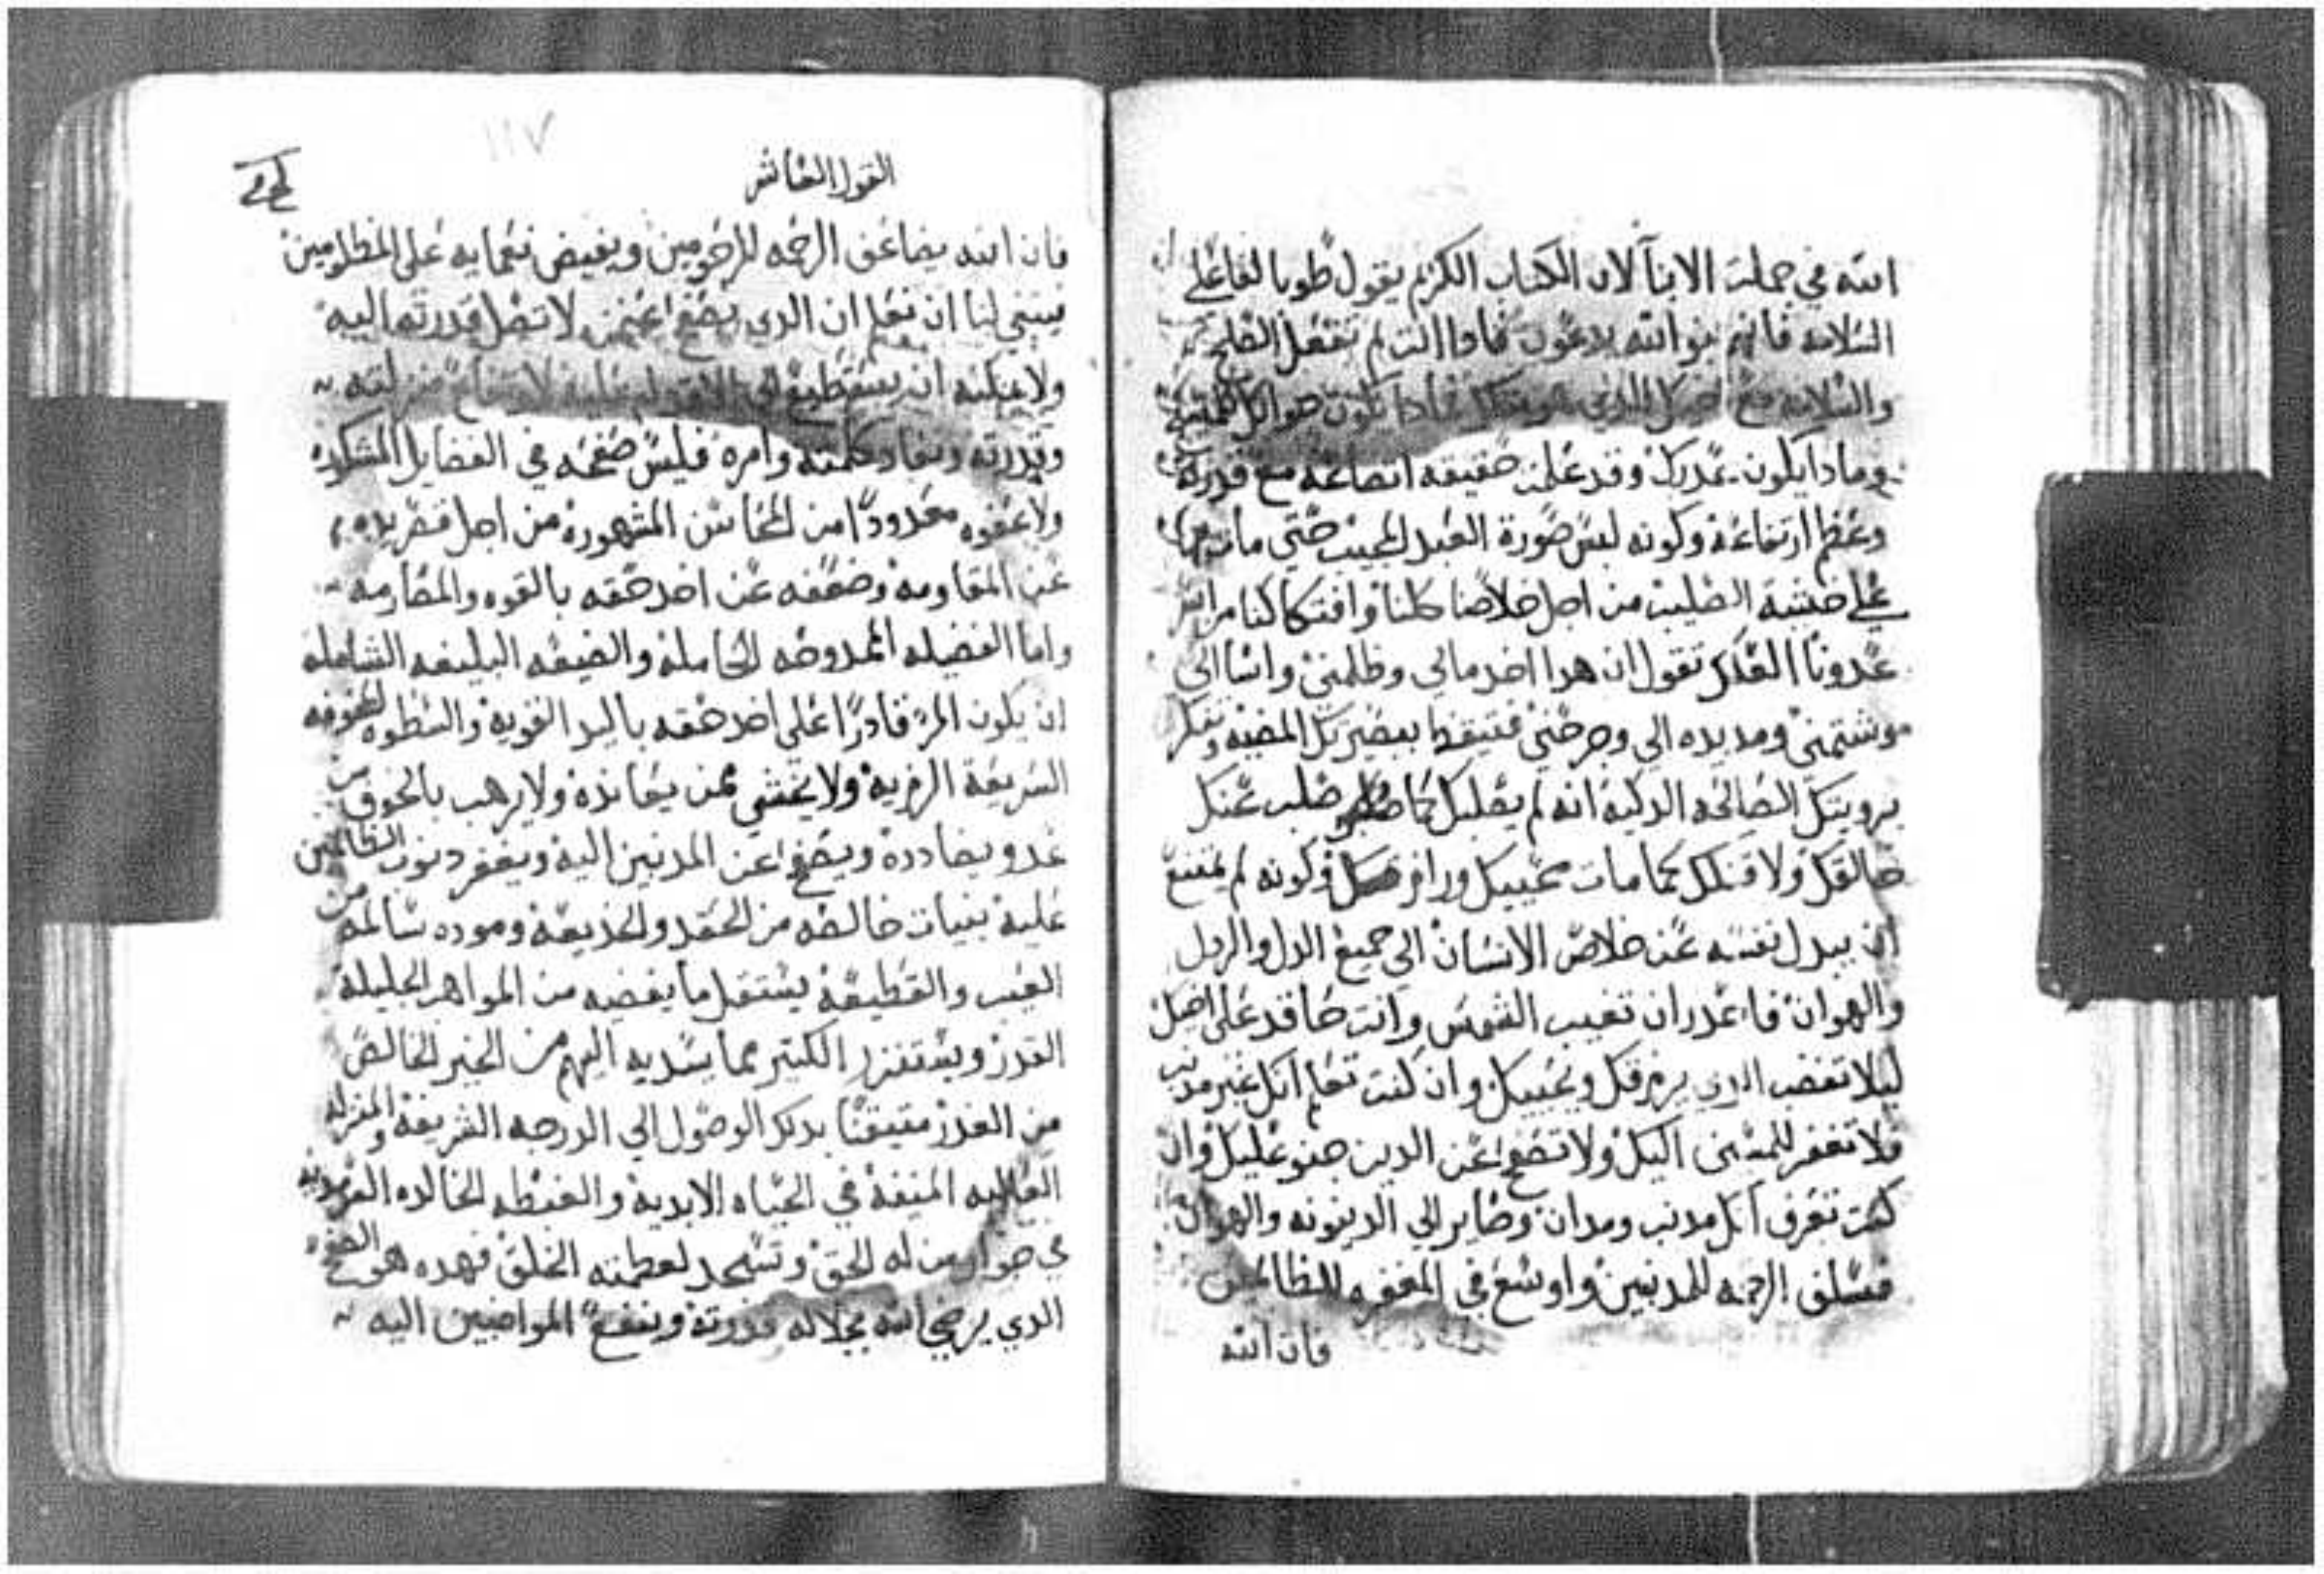 الله في جملة الابنآ لان الكتاب الكريم يقول طوبا لفاعلي
السلامه فانهم بنو الله يدعون فادا انت لم تفعل الصلح
والسلامه مع فادا يكون جوابك
وما دا يكون عدرك وقد علمت حقيقه اتضاعه مع قدرته
وعظم ارتفاعه وكونه لبس صورة العبد حتي مات
علي خشبة الصليب من اجل خلاصنا كلنا وافتكاكنا من اسر
عدونا تقول ان هدا اخد مالي وظلمني واسا الي
وشتمني ومد يده الي وجرحني فتيقظ ببصيرتك المضيه وتفكر
برويتك الصالحه الدكيه انه لم يصلبك كما صلب عنك
خالقك ولا قتلك كما مات محييك ورازقك وكونه لم يمتنع
ان يبدل نفسه عن خلاص الانسان الي جميع الدل والردل
والهوان فاحدر ان تغيب الشمس وانت حاقد علي احد
ليلا تغضب الدي يرزقك ويحييك وان كنت تعلم انك غير مدنب
فلا تغفر للمسى اليك ولا تصفح عن الدين جنو عليك وان
كنت تعرف انك مدنب ومدان وصاير الي الدينونه والهوان
فسلف الرحمه للمدنبين واوسع في المغفره للظالمين
فان الله
١١٧
القول العاشر
فان الله يضاعف الرحمه للراحومين ويفيض نعمايه علي المظلومين
ينبغي لنا ان نعلم ان الدي يصفح عمن لا تصل قدرته اليه
ولا يمكنه ان يستطيع منزلته
وقدرته ونفاد كلمته وامره فليس صفحه في الفضايل المشكوره
ولا عفوه معدودًا من المحاسن المشهوره من اجل
عن المقاومه وضعفه عن اخد حقه بالقوه والمصارمه
واما الفضيله الممدوحه الكامله والصيغه البليغه الشامله
ان يكون المرء قادرًا علي اخد حقه باليد القويه والسطوه المخوفه
السريعة ولا يخشي ممن يعانده ولا يرهب بالخوف من
عدو يضادده ويصفح عن المدنبين اليه ويغفر دنوب الظالمين
عليه بنيات خالصه من الحقد والخديعه وموده سالمه من
العيب والقطيعه يستقل ما يفضيه من المواهب الجليلة
القدر ويستنزر الكتير مما يسديه اليهم من الخير الخالص
من الغدر متيقنًا بدلك الوصول الي الدرجه الشريفه والمنزله
العاليه المنيفة في الحياه الابدية والغبطه الخالده السرمديه
في جوار من له الحق وتسجد لعظمته الخلق فهده هو الصفح
الدي يرضي الله بجلاله قدرته وينفع المواضبين اليه